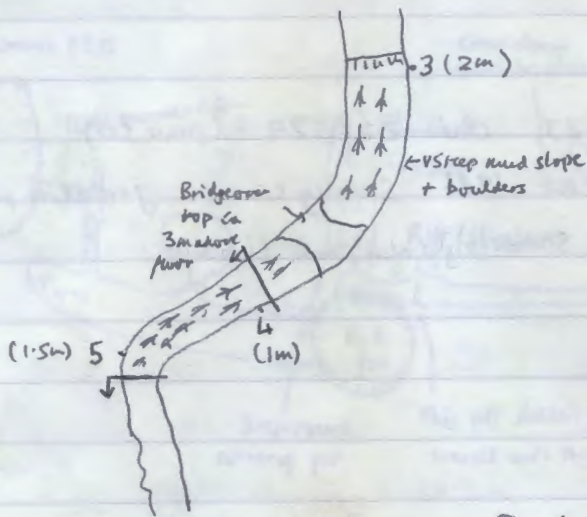 3 (2m)
← v steep mud slope
+ boulders
Bridge over
top ca
3m above
floor
4
(1m)
(1.5m) 5